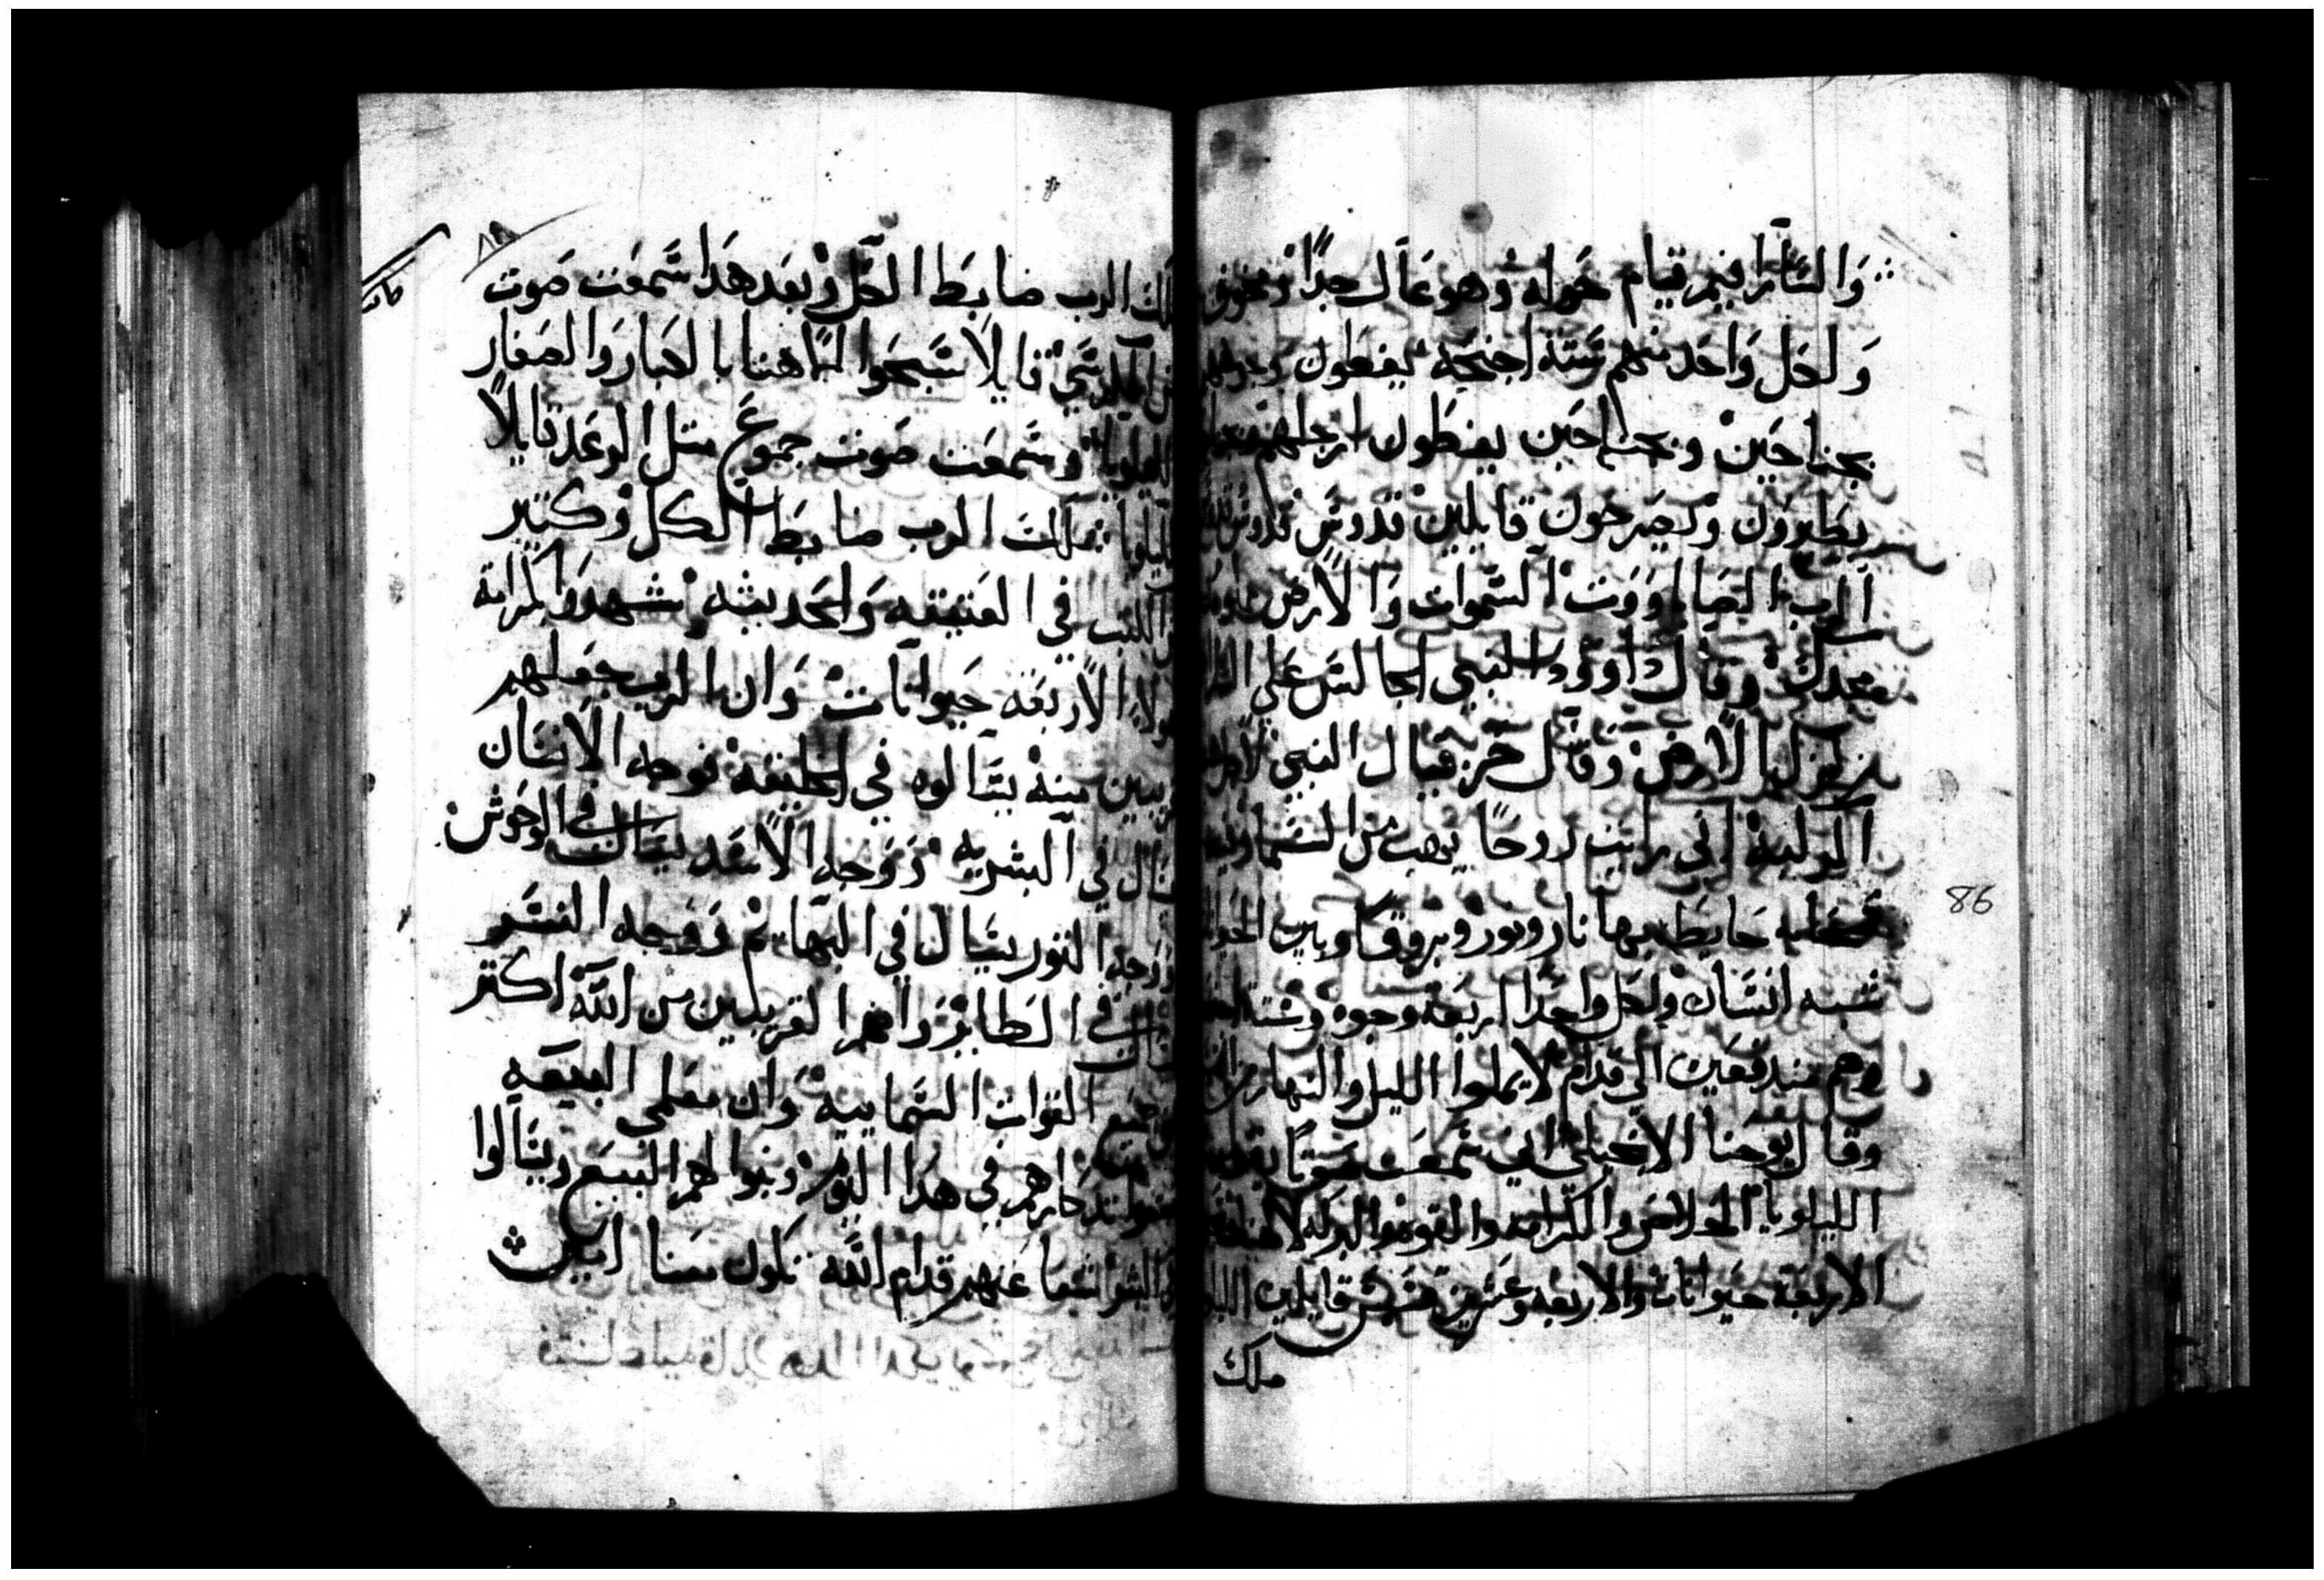 وَالسَّارافيم قيام حَوله وهو عَال جدًا ومخوف
وَلكل وَاحَد منهم سَتة اجنحَه يغطون وجوههم
بجناحَين وبجناحَين يغطون ارجلهم
يطيرون ويصَرخون قايلين قدوسَ قدوسَ
الرب الصَاباووت السَموات وَالارض
مجدك وقال داوود النبي الجالسَ عَلي
تزلزل الارض وقال حزقيال النبي
اني رايت روحًا يهب من الشمال
حَايطَه بها نار ونور وبروق وبين
شبه انسَان ولكل واحَد اربعَة وجوه وسَتة
وهم مندفعَين الي قدام لا يملوا الليل والنهار
وقال يوحنا الانجيلي اني سَمعَت صَوتًا
الليلويا الخلاص والكرامه والقوه
الاربعَة حَيوانات والاربعه وعَشرين قسَيسَ قايلين
ملك
٨٦
86
ملك الرب ضابط الكل وبعَد هذَا سَمعَت صَوت
من الكرسَي قايلًا سَبحَوا الاهنا يا الكبار وَالصَغار
الليلويا وسَمعَت صَوت جموع متل الرعَد قايلًا
الليلويا تملك الرب ضابط الكل وكتير
الكتب في العَتيقه وَالحَديثه شهدوا لكرامة
هولاي الاربعَه حَيوانات وَان الرب جعَلهم
قريبين منه يسَالوه في الخليقه فوجه الانسَان
يسَال في البشريه وَوَجه الاسَد يسَال في الوحَوش
ووجه التور يسَال في البهايم وَوجه النسَر
يسَال في الطاير وَانهم القريبين من الله اكتر
من جميع القوات السَماييه وَان معَلمي البيعَه
تدكارهم في هدَا اليوم وبنوا لهم البيع ويسَالوا
في البشر شفعَا عَنهم قدام الله تكون معَنا امين